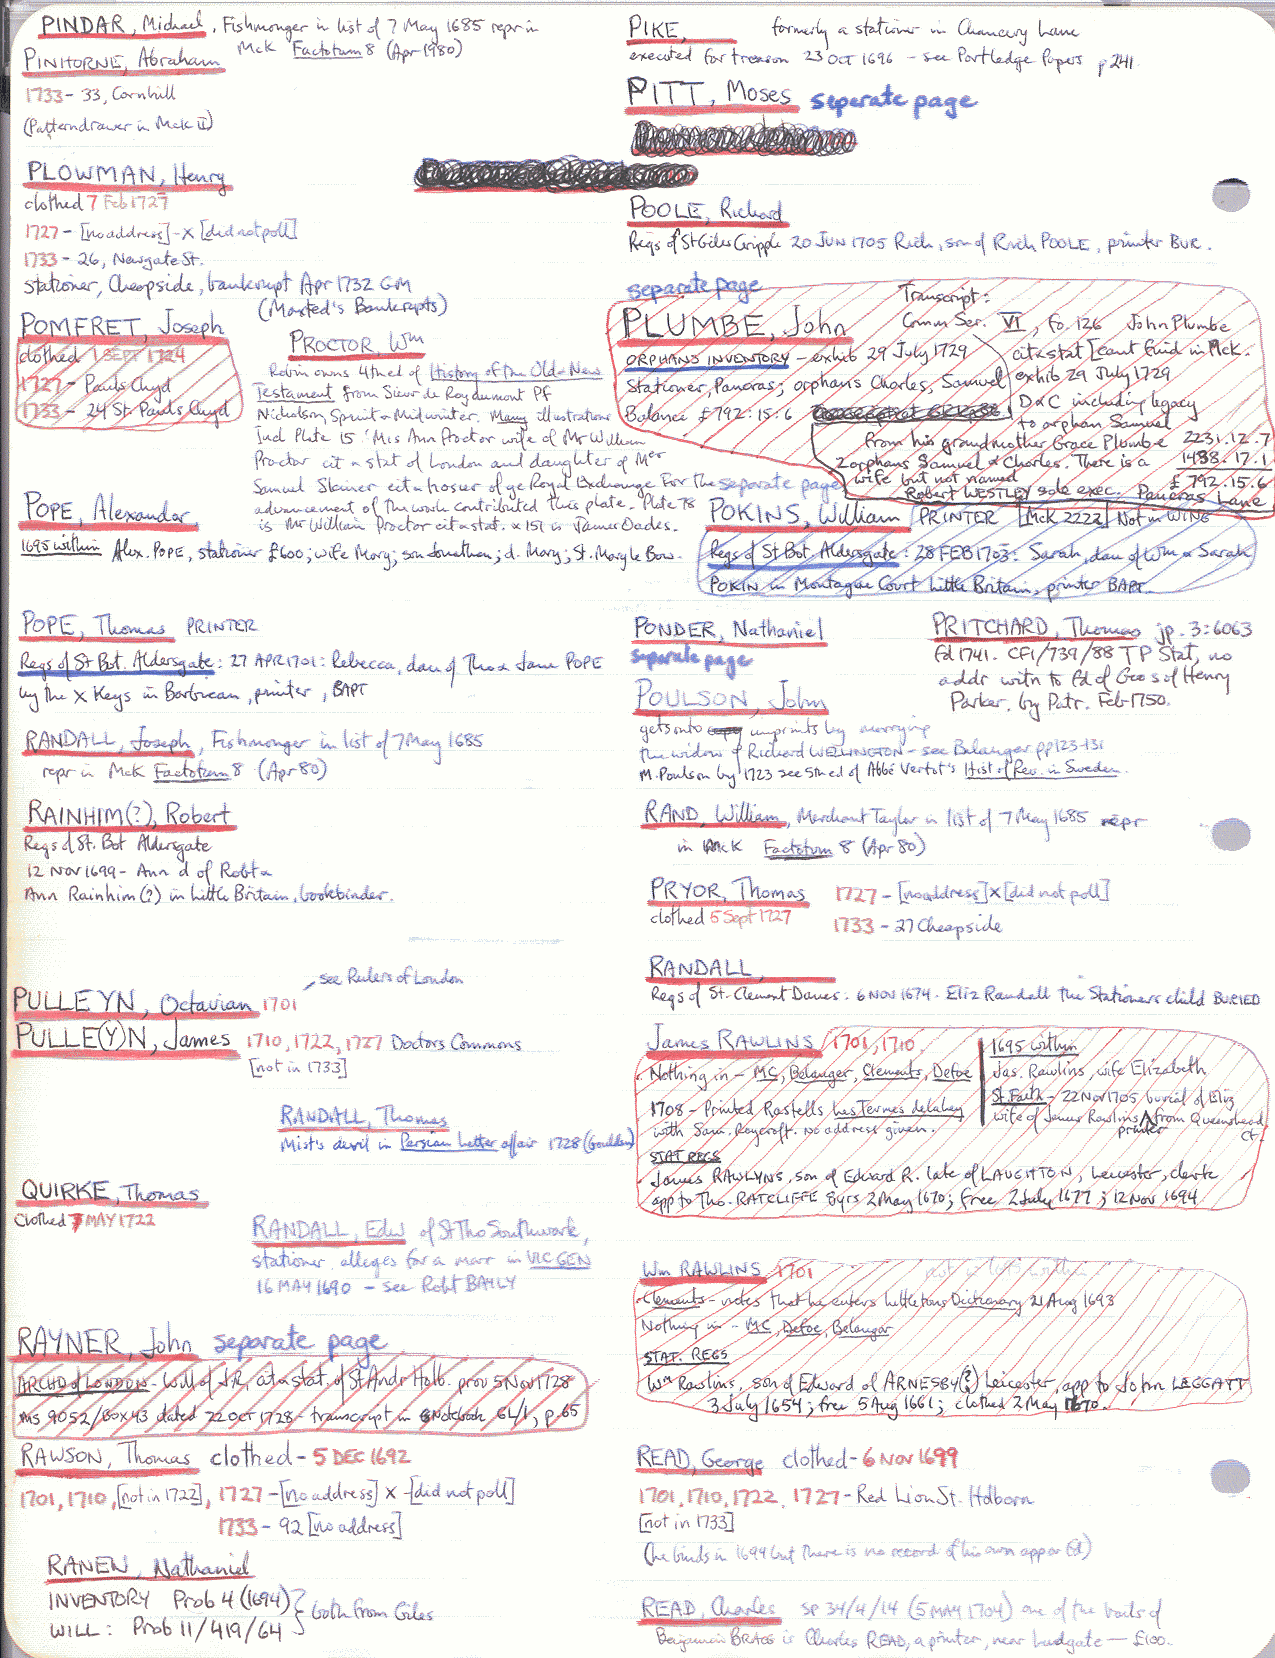 PINDAR, Michael, Fishmonger in list of 7 May 1685 repr in
McK Factotum 8 (Apr 1980)
PINHORNE, Abraham
1733 - 33, Cornhill
(Patterndrawer in McK II)
PLOWMAN, Henry
clothed 7 Feb 1727
1727 - [no address] - X [did not poll]
1733 - 26, Newgate St.
stationer, Cheapside, bankrupt Apr 1732 GM
(Masted's Bankrupts)
POMFRET, Joseph
clothed 1 SEPT 1724
1727 - Pauls Chyd
1733 - 24 St. Pauls Chyd
PROCTOR, Wm
Robin owns 4th ed of History of the Old & New
Testament from Sieur de Royaumont Pf
Nicholson, Sprint & Midwinter. Many illustrations
Incl Plate 15 'Mis Ann Proctor wife of Mr William
Proctor cit & stat of London and daughter of Mr
Samuel Skiner cit & hosier of ye Royal Exchange For the
advancement of this work contributed this plate. Plate 78
is Mr William Proctor cit & stat. & 151 is James Oades.
POPE, Alexander
1695 within Alex. POPE, stationer £600; wife Mary; son Jonathan; d. Mary; St. Mary le Bow.
POPE, Thomas PRINTER
Regs of St Bot. Aldersgate: 27 APR 1701: Rebecca, dau of Tho & Jane POPE
by the X Keys in Barbican, printer, BAPT
RANDALL, Joseph, Fishmonger in list of 7 May 1685
repr in McK Factotum 8 (Apr 80)
RAINHIM(?), Robert
Regs of St. Bot Aldersgate
12 NOV 1699 - Ann d of Robt &
Ann Rainhim(?) in Little Britain, bookbinder.
see Rulers of London
PULLEYN, Octavian 1701
PULLE(Y)N, James 1710, 1722, 1727 Doctors Commons
[not in 1733]
RANDALL, Thomas
Mist's devil in Persian Letter affair 1728 (Goulden)
QUIRKE, Thomas
clothed 7 MAY 1722
RANDALL, Edw of St Tho Southwark,
stationer, alleges for a marr in VIC GEN
16 MAY 1690 - see Robt BAYLY
RAYNER, John separate page
ARCHD of LONDON - Will of J.R, cit & stat. of St Andr Holb. prov 5 Nov 1728
MS 9052/Box 43 dated 22 OCT 1728 - transcript in Notebook 64/1, p.65
RAWSON, Thomas clothed - 5 DEC 1692
1701, 1710, [not in 1722], 1727 - [no address] X - [did not poll]
1733 - 92 [no address]
RANEN, Nathaniel
INVENTORY Prob 4 (1694)
WILL: Prob 11/419/64
both from Giles
PIKE, formerly a stationer in Chancery Lane
executed for treason 23 OCT 1696 - see Portledge Papers p 241.
PITT, Moses seperate page
POOLE, Richard
Regs of St Giles Cripple 20 JUN 1705 Rich, son of Rich POOLE, printer BUR.
seperate page
PLUMBE, John
ORPHANS INVENTORY - exhib 29 July 1729
Stationer, Pancras; orphans Charles, Samuel
Balance £792:15:6
Transcript:
Comm Ser. VI, fo. 126 John Plumbe
cit & stat [cant find in McK.
exhib 29 July 1729
D & C including legacy
to orphan Samuel
from his grandmother Grace Plumbe 2231.12.7
2 orphans Samuel & Charles. There is a 1438.17.1
wife but not named £792.15.6
Robert WESTLEY sole exec. Pancras Lane
separate page
POKINS, William PRINTER [McK 2222] Not in WING
Regs of St Bot Aldersgate: 28 FEB 1703: Sarah, dau of Wm & Sarah
POKIN in Montague Court Little Britain, printer BAPT.
PONDER, Nathaniel
seperate page
PRITCHARD, Thomas jp. 3:6063
fd 1741. CF1/739/88 TP Stat, no
addr witn to fd of Geo s of Henry
Parker, by Patr. Feb 1750.
POULSON, John
gets onto imprints by marrying
the widow of Richard WELLINGTON - see Belanger pp 123-131
M. Poulson by 1723 see 5th ed of Abbé Vertot's Hist of Rev. in Sweden.
RAND, William, Merchant Taylor in list of 7 May 1685 repr
in McK Factotum 8 (Apr 80)
PRYOR, Thomas 1727 - [no address] X [did not poll]
clothed 5 Sept 1727 1733 - 27 Cheapside
RANDALL,
Regs of St. Clement Danes: 6 NOV 1674. Eliz Randall the Stationers child BURIED
James RAWLINS 1701, 1710
Nothing in - MC, Belanger, Clements, Defoe
1708 - Printed Rastells Les Termes de la ley
with Sam. Roycroft. no address given.
1695 within
Jas. Rawlins, wife Elizabeth
St. Faith - 22 Nov 1705 burial of Eliz
wife of James Rawlins printer from Queenshead
Ct.
STAT REGS
James RAWLYNS, son of Edward R. late of LAUGHTON, Leicester, clerke
app to Tho. RATCLIFFE 8 yrs 2 May 1670; free 2 July 1677; 12 Nov 1694.
Wm RAWLINS 1701 not in 1695 within
Clements - notes that he enters Littletons Dictionary 21 Aug 1693
Nothing in - MC, Defoe, Belanger
STAT. REGS
Wm Rawlins, son of Edward of ARNESBY(?) Leicester, app to John LEGGATT
3 July 1654; free 5 Aug 1661; clothed 2 May 1670.
READ, George clothed - 6 NOV 1699
1701, 1710, 1722, 1727 - Red Lion St. Holborn
[not in 1733]
(he binds in 1694 but there is no record of his own app or fd)
READ, Charles SP 34/4/14 (5 MAY 1704) one of the bails of
Benjamin BRAGG is Charles READ, a printer, near Ludgate - £100.